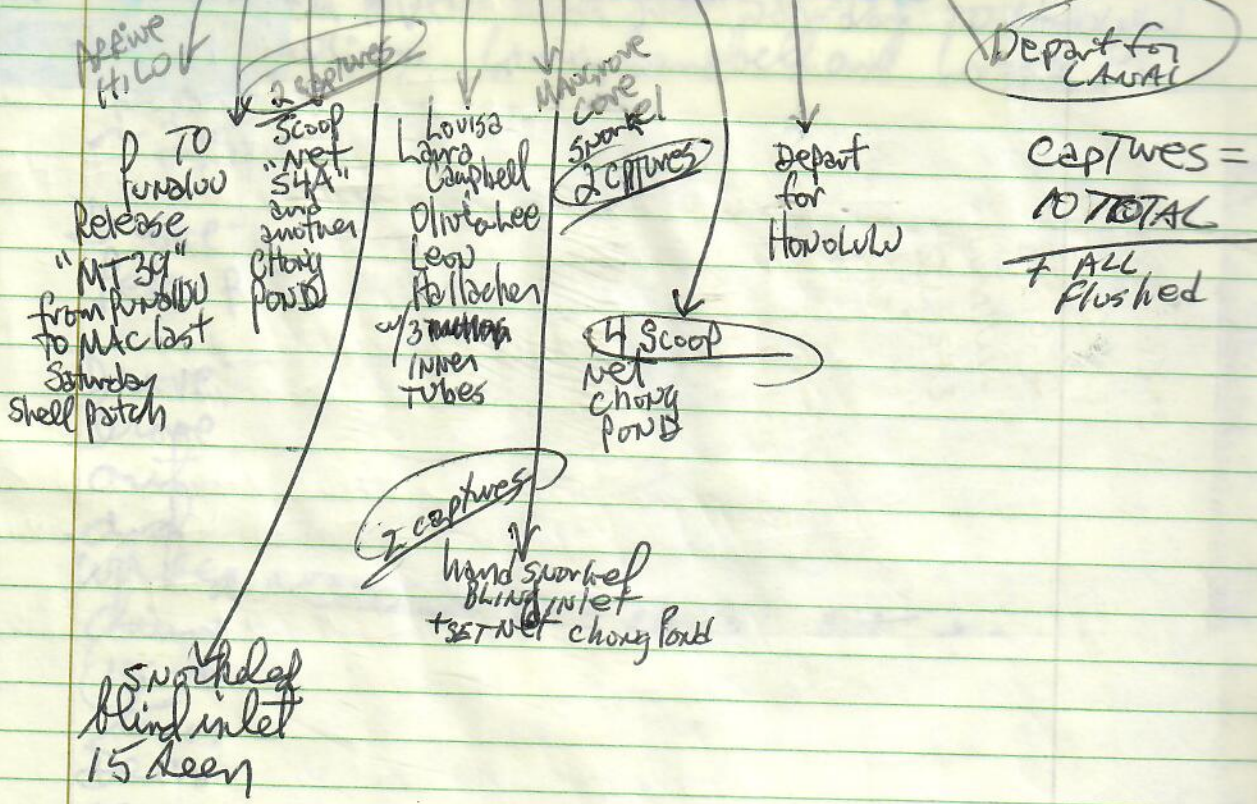 Arrive
HILO
TO
Punaluu
Release
"MT39"
from Punaluu
to MAC last
Saturday
shell patch
2 captures
Scoop
Net
"54A"
and
another
CHONG
POND
Louisa
Laura
Campbell
Olivia Lee
Leon
Hallacher
w/3
INNER
TUBES
MANgrove
Cove
Snorkel
2 CAPTURES
4 Scoop
Net
CHONG
POND
Depart
for
HONOLULU
Depart for
CANAL
CAPTURES =
10 TOTAL
+ ALL
Flushed
2 captures
hand snorkel
BLIND INLET
+SET NET Chong Pond
snorkeled
blind inlet
15 seen